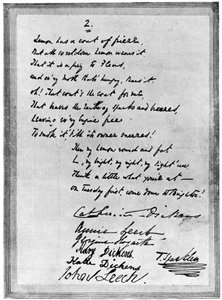 2.
Lemon has a coat of frieze,
But all so seldom Lemon wears it
That it is a prey to fleas,
And ev'ry moth that's hungry, tears it
Oh! that coat's the coat for me,
That braves the railway sparks and breezes,
Leaving ev'ry engine free
To smoke it till its owner sneezes!
Then my Lemon round and fat
L., my bright, my right, my tight 'un,
Think a little what you're at—
On Tuesday first come down to Brighton!
Catherine Dickens
Annie Leech
Georgina Hogarth
Mary Dickens
Katie Dickens
John Leech